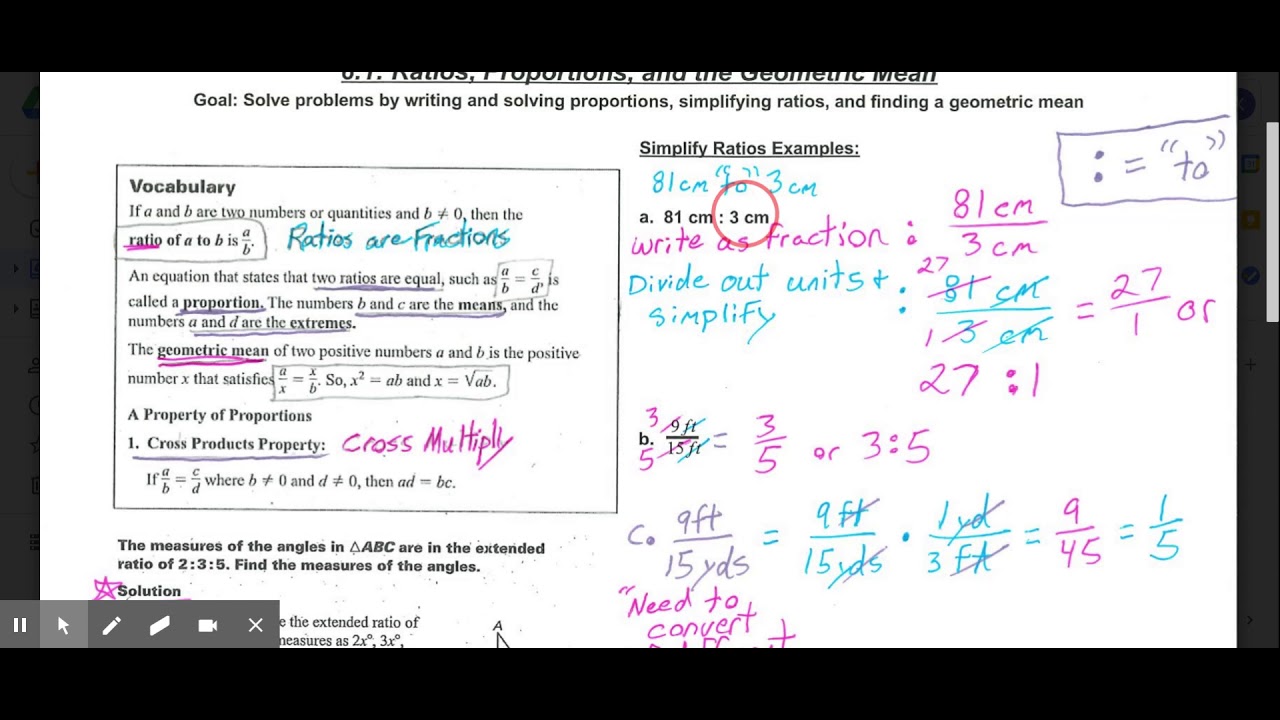 6.1: Ratios, Proportions, and the Geometric Mean
Goal: Solve problems by writing and solving proportions, simplifying ratios, and finding a geometric mean
Vocabulary
If a and b are two numbers or quantities and b ≠ 0, then the
ratio of a to b is a/b. Ratios are Fractions
An equation that states that two ratios are equal, such as a/b = c/d, is
called a proportion. The numbers b and c are the means, and the
numbers a and d are the extremes.
The geometric mean of two positive numbers a and b is the positive
number x that satisfies a/x = x/b. So, x² = ab and x = √ab.
A Property of Proportions
1. Cross Products Property: Cross Multiply
If a/b = c/d where b ≠ 0 and d ≠ 0, then ad = bc.
The measures of the angles in △ABC are in the extended
ratio of 2:3:5. Find the measures of the angles.
Solution
e the extended ratio of
measures as 2x°, 3x°,
A
Simplify Ratios Examples:
: = "to"
81cm "to" 3cm
a. 81 cm : 3 cm
Write as fraction : 81 cm / 3 cm
Divide out units +
simplify : 27 81 cm / 1 3 cm = 27/1 or
27 : 1
b. 3 9 ft / 5 15 ft = 3/5 or 3:5
c. 9ft / 15yds = 9ft / 15yds · 1yd / 3ft = 9/45 = 1/5
"Need to
convert